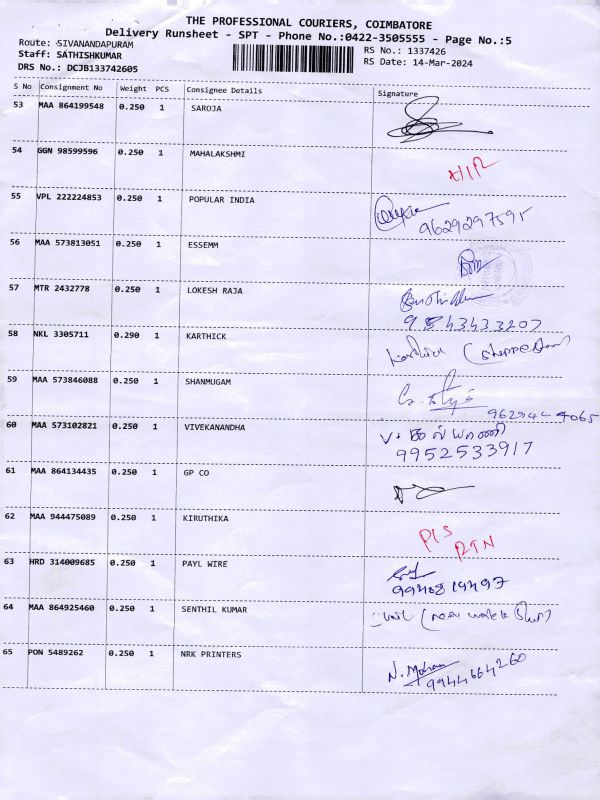 THE PROFESSIONAL COURIERS, COIMBATORE
Delivery Runsheet - SPT - Phone No.:0422-3505555 - Page No.:5
Route: SIVANANDAPURAM
Staff: SATHISHKUMAR
DRS No.: DCJB133742605
RS No.: 1337426
RS Date: 14-Mar-2024
S No Consignment No Weight PCS Consignee Details Signature
53 MAA 864199548 0.250 1 SAROJA
54 GGN 98599596 0.250 1 MAHALAKSHMI
55 VPL 222224853 0.250 1 POPULAR INDIA
9629297595
56 MAA 573813051 0.250 1 ESSEMM
57 MTR 2432778 0.250 1 LOKESH RAJA
9543433207
58 NKL 3305711 0.290 1 KARTHICK
59 MAA 573846088 0.250 1 SHANMUGAM
60 MAA 573102821 0.250 1 VIVEKANANDHA
9952533917
61 MAA 864134435 0.250 1 GP CO
62 MAA 944475089 0.250 1 KIRUTHIKA
RTN
63 HRD 314009685 0.250 1 PAYL WIRE
64 MAA 864925460 0.250 1 SENTHIL KUMAR
65 PON 5489262 0.250 1 NRK PRINTERS
N. Mohan
9944664260